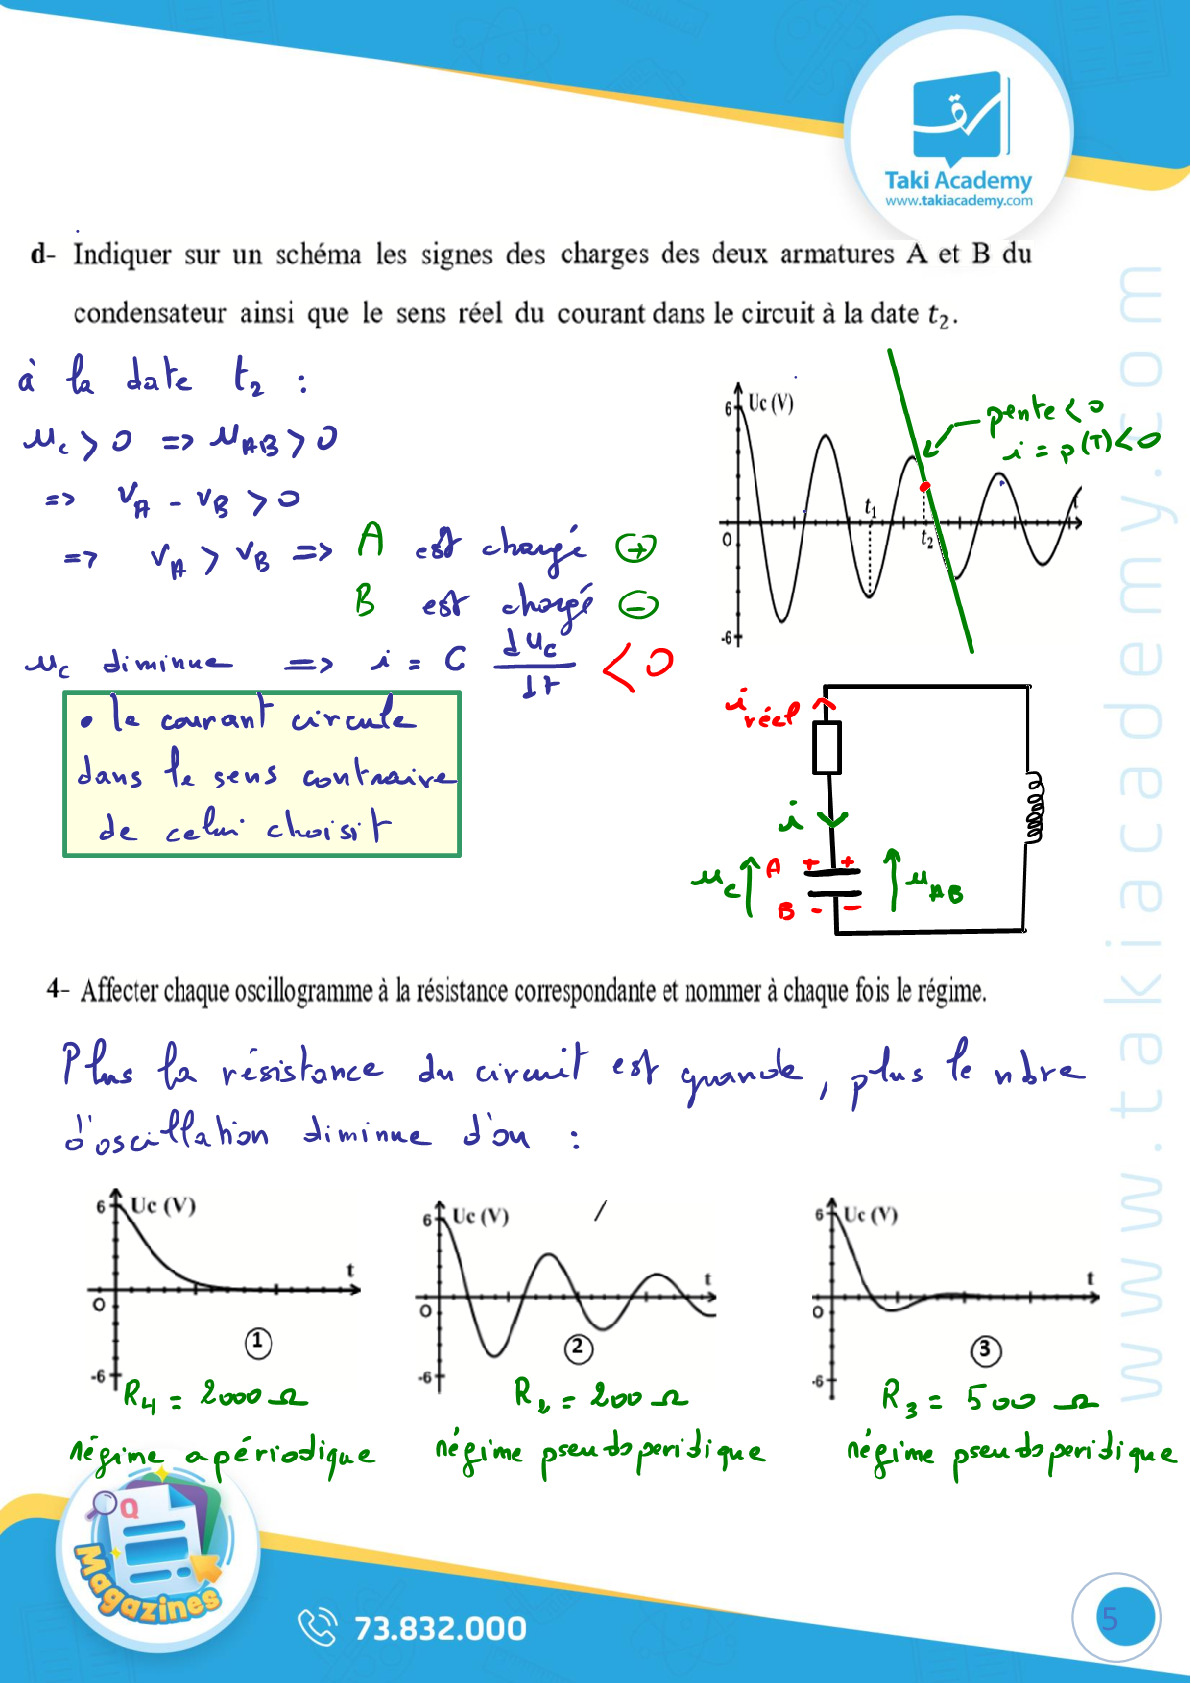 Taki Academy
www.takiacademy.com
d- Indiquer sur un schéma les signes des charges des deux armatures A et B du
condensateur ainsi que le sens réel du courant dans le circuit à la date t₂.
à la date t₂ :
u_c > 0 => u_AB > 0
=> V_A - V_B > 0
=> V_A > V_B => A est chargé +
B est chargé -
u_c diminue => i = C du_c/dt < 0
• le courant circule
dans le sens contraire
de celui choisit
6 Uc (V)
pente < 0
i = p(T) < 0
t₁
0
t₂
-6
i réel
i
u_c A + + u_AB
B - -
www.takiacademy.com
4- Affecter chaque oscillogramme à la résistance correspondante et nommer à chaque fois le régime.
Plus la résistance du circuit est grande, plus le nbre
d'oscillation diminue d'ou :
6 Uc (V)
t
O
1
-6
R₄ = 2000 Ω
régime apériodique
6 Uc (V)
t
O
2
-6
R₂ = 200 Ω
régime pseudoperidique
6 Uc (V)
t
O
3
-6
R₃ = 500 Ω
régime pseudoperidique
Q
Magazines
73.832.000
5